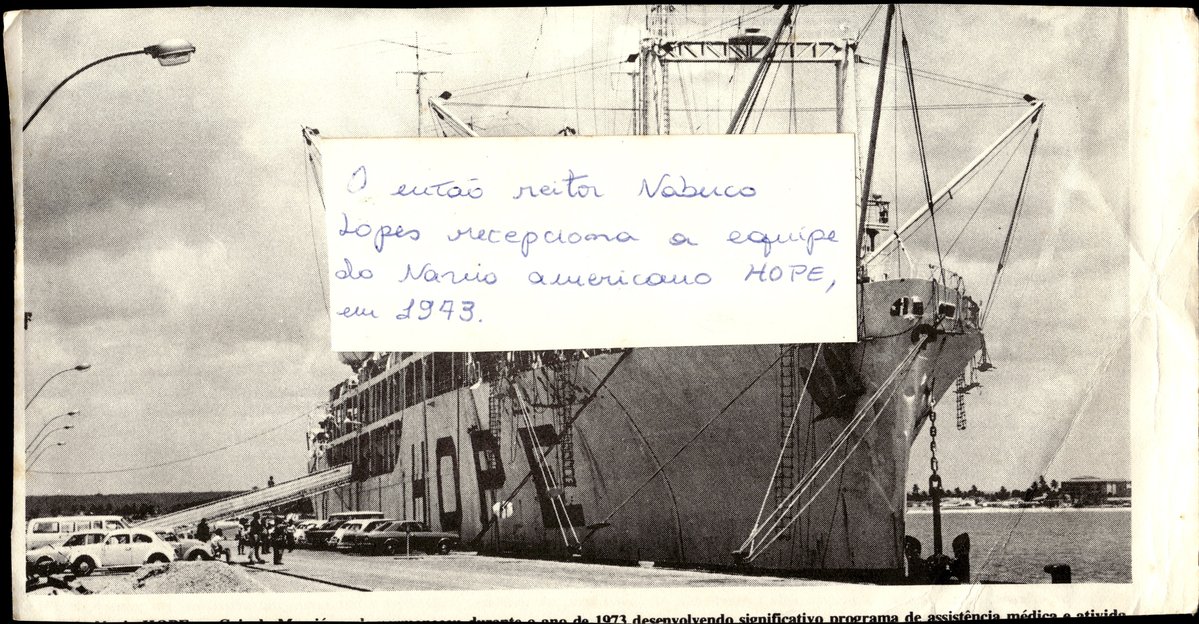 O então reitor Nabuco
Lopes recepciona a equipe
do Navio americano HOPE,
em 1973.
HOPE
HOPE durante o ano de 1973 desenvolvendo significativo programa de assistência médica e ativida